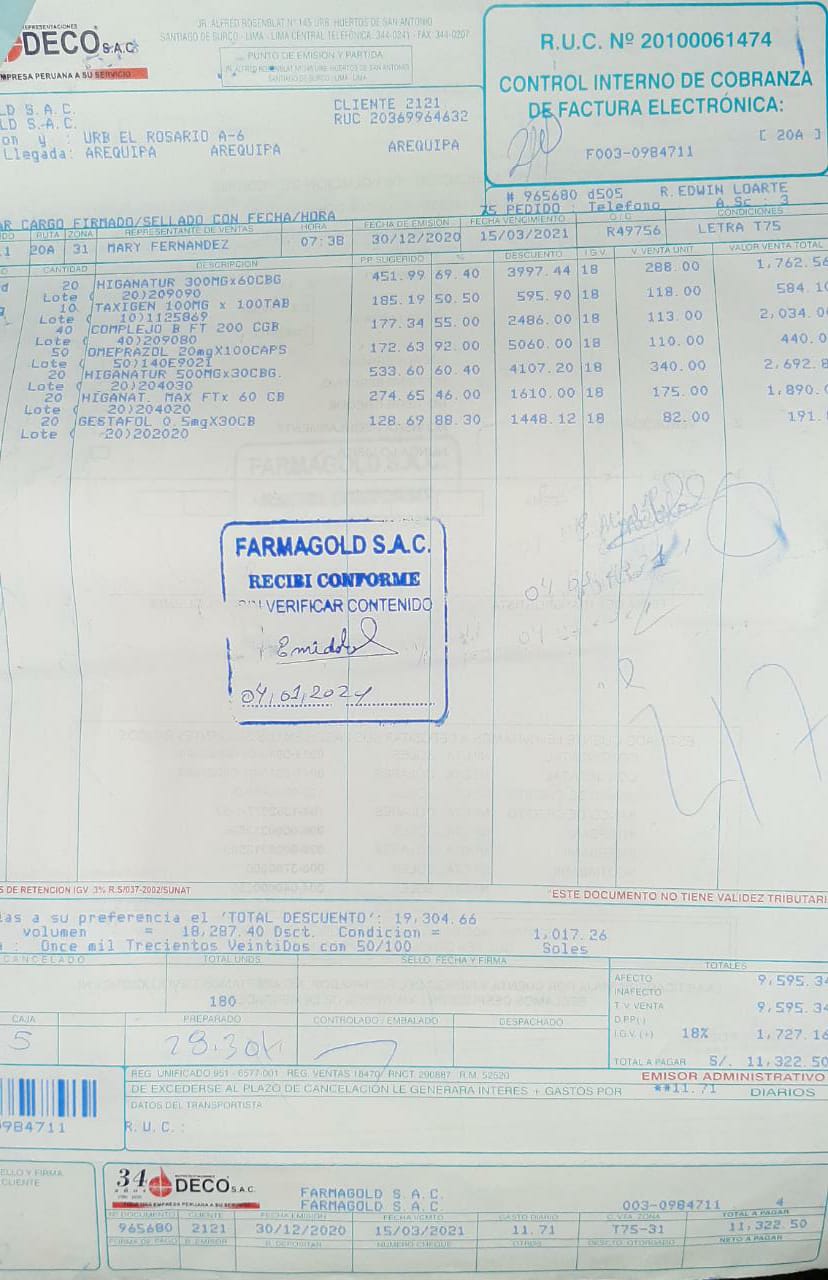 REPRESENTACIONES
DECO S.A.C.
EMPRESA PERUANA A SU SERVICIO
JR. ALFRED ROSENBLAT Nº 145 URB. HUERTOS DE SAN ANTONIO
SANTIAGO DE SURCO - LIMA - LIMA CENTRAL TELEFÓNICA: 344-0241 - FAX: 344-0207
PUNTO DE EMISIÓN Y PARTIDA
JR. ALFRED ROSENBLAT Nº 145 URB. HUERTOS DE SAN ANTONIO
SANTIAGO DE SURCO - LIMA - LIMA
R.U.C. Nº 20100061474
CONTROL INTERNO DE COBRANZA
DE FACTURA ELECTRÓNICA:
[ 20A ]
F003-0984711
LD S.A.C.
LD S.A.C.
CLIENTE 2121
RUC 20369964632
on y : URB EL ROSARIO A-6
Llegada: AREQUIPA AREQUIPA AREQUIPA
# 965680 d505 R.EDWIN LOARTE
75 PEDIDO : Telefono A.Sc : 3
AR CARGO FIRMADO/SELLADO CON FECHA/HORA
RUTA ZONA REPRESENTANTE DE VENTAS HORA FECHA DE EMISIÓN FECHA VENCIMIENTO O/C CONDICIONES
20A 31 MARY FERNANDEZ 07:38 30/12/2020 15/03/2021 R49756 LETRA T75
CANTIDAD DESCRIPCION PP SUGERIDO % DESCUENTO I.G.V. V.VENTA UNIT VALOR VENTA TOTAL
20 HIGANATUR 300MGx60CBG 451.99 69.40 3997.44 18 288.00 1,762.56
Lote ( 20)209090
10 TAXIGEN 100MG x 100TAB 185.19 50.50 595.90 18 118.00 584.10
Lote ( 10)1125869
40 COMPLEJO B FT 200 CGB 177.34 55.00 2486.00 18 113.00 2,034.0
Lote ( 40)209080
50 OMEPRAZOL 20mgX100CAPS 172.63 92.00 5060.00 18 110.00 440.0
Lote ( 50)140E9021
20 HIGANATUR 500MGx30CBG. 533.60 60.40 4107.20 18 340.00 2,692.8
Lote ( 20)204030
20 HIGANAT. MAX FTx 60 CB 274.65 46.00 1610.00 18 175.00 1,890.0
Lote ( 20)204020
20 GESTAFOL 0.5mgX30CB 128.69 88.30 1448.12 18 82.00 191.
Lote ( 20)202020
FARMAGOLD S.A.C.
RECIBI CONFORME
SIN VERIFICAR CONTENIDO
04,01,2021
47
S DE RETENCION IGV 3% R.S/037-2002/SUNAT
"ESTE DOCUMENTO NO TIENE VALIDEZ TRIBUTARI
as a su preferencia el 'TOTAL DESCUENTO': 19,304.66
volumen = 18,287.40 Dsct. Condicion = 1,017.26
: Once mil Trecientos VeintiDos con 50/100 Soles
CANCELADO TOTAL UNDS. SELLO, FECHA Y FIRMA TOTALES
180
AFECTO 9,595.34
INAFECTO
T.V. VENTA 9,595.34
D.PP(-)
I.G.V. (+) 18% 1,727.16
TOTAL A PAGAR S/. 11,322.50
CAJA PREPARADO CONTROLADO / EMBALADO DESPACHADO
5
REG. UNIFICADO 951 - 6577-001 REG. VENTAS 18470/ RNCT. 290887 R.M. 52520
EMISOR ADMINISTRATIVO
DE EXCEDERSE AL PLAZO DE CANCELACIÓN LE GENERARA INTERES + GASTOS POR **11.71 DIARIOS
DATOS DEL TRANSPORTISTA
R.U.C.:
984711
SELLO Y FIRMA
CLIENTE
34 AÑOS DECO S.A.C.
EMPRESA PERUANA A SU SERVICIO
FARMAGOLD S.A.C.
FARMAGOLD S.A.C.
003-0984711 4
Nº DOCUMENTO CLIENTE FECHA EMISIÓN FECHA VCMTO GASTO DIARIO C.VTA ZONA TOTAL A PAGAR
965680 2121 30/12/2020 15/03/2021 11.71 T75-31 11,322.50
FORMA DE PAGO B. EMISOR B. DEPOSITAR NUMERO CHEQUE OTROS DESCTO. OTORGADO NETO A PAGAR